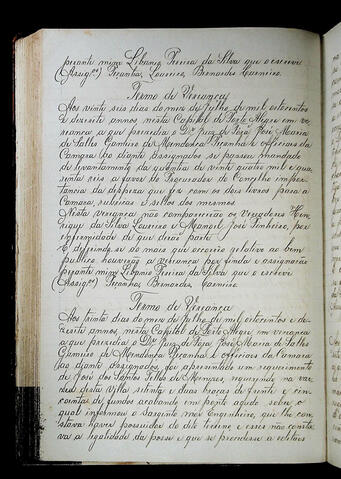 perante mim Libanio Pereira da Silva que o escrevi
(Assig.os) Peçanha, Loureiro, Bernardes Carneiro.
Termo de Vereança
Aos vinte seis dias do mez de Julho de mil oitocentos
e dezoito annos, nesta Capital de Porto Alegre em ve-
riança a que prezedio o Dr. Juiz de Fora José Maria
de Salles Gameiro de Mendonça Peçanha e officiaes da
Camara ao diante assignados se passou mandado
de levantamento da quantia de vinte quatro mil e qua-
renta reis a favor do Procurador do Concelho impor-
tancia da despeza que fez com os dois livros para a
Camara, rubricas e sellos dos mesmos.
Nesta vereança não comparecerão os Vereadores Hen-
rique da Silva Loureiro e Manoel José Pinheiro, por
enfermidade de que derão parte.
E deferindo-se do mais que occorria relativo ao bem
publico houverão a vereança por finda e assignarão
perante mim Libanio Pereira da Silva que o escrevi
(Assig.os) Peçanha, Bernardes, Carneiro.
Termo de Vereança
Aos trinta dias do mez de Julho, de mil oitocentos e de-
zoito annos, nesta Capital de Porto Alegre em vereança
a que prezedio o Dr. Juiz de Fora José Maria de Salles
Gameiro de Mendonça Peçanha e officiaes da Camara
ao diante assignados, foi aprezentado um requerimento
de José dos Santos Telles de Menezes, requerendo na var-
zea desta Villa setenta e duas braças de frente e cin-
coenta de fundos acabando em ponto agudo, sobre o
qual informou o Sargento mor Engenheiro, que lhe con-
stava haver possuidor do dito terreno e esses não consta-
va a legalidade da posse e que se procedesse a editaes